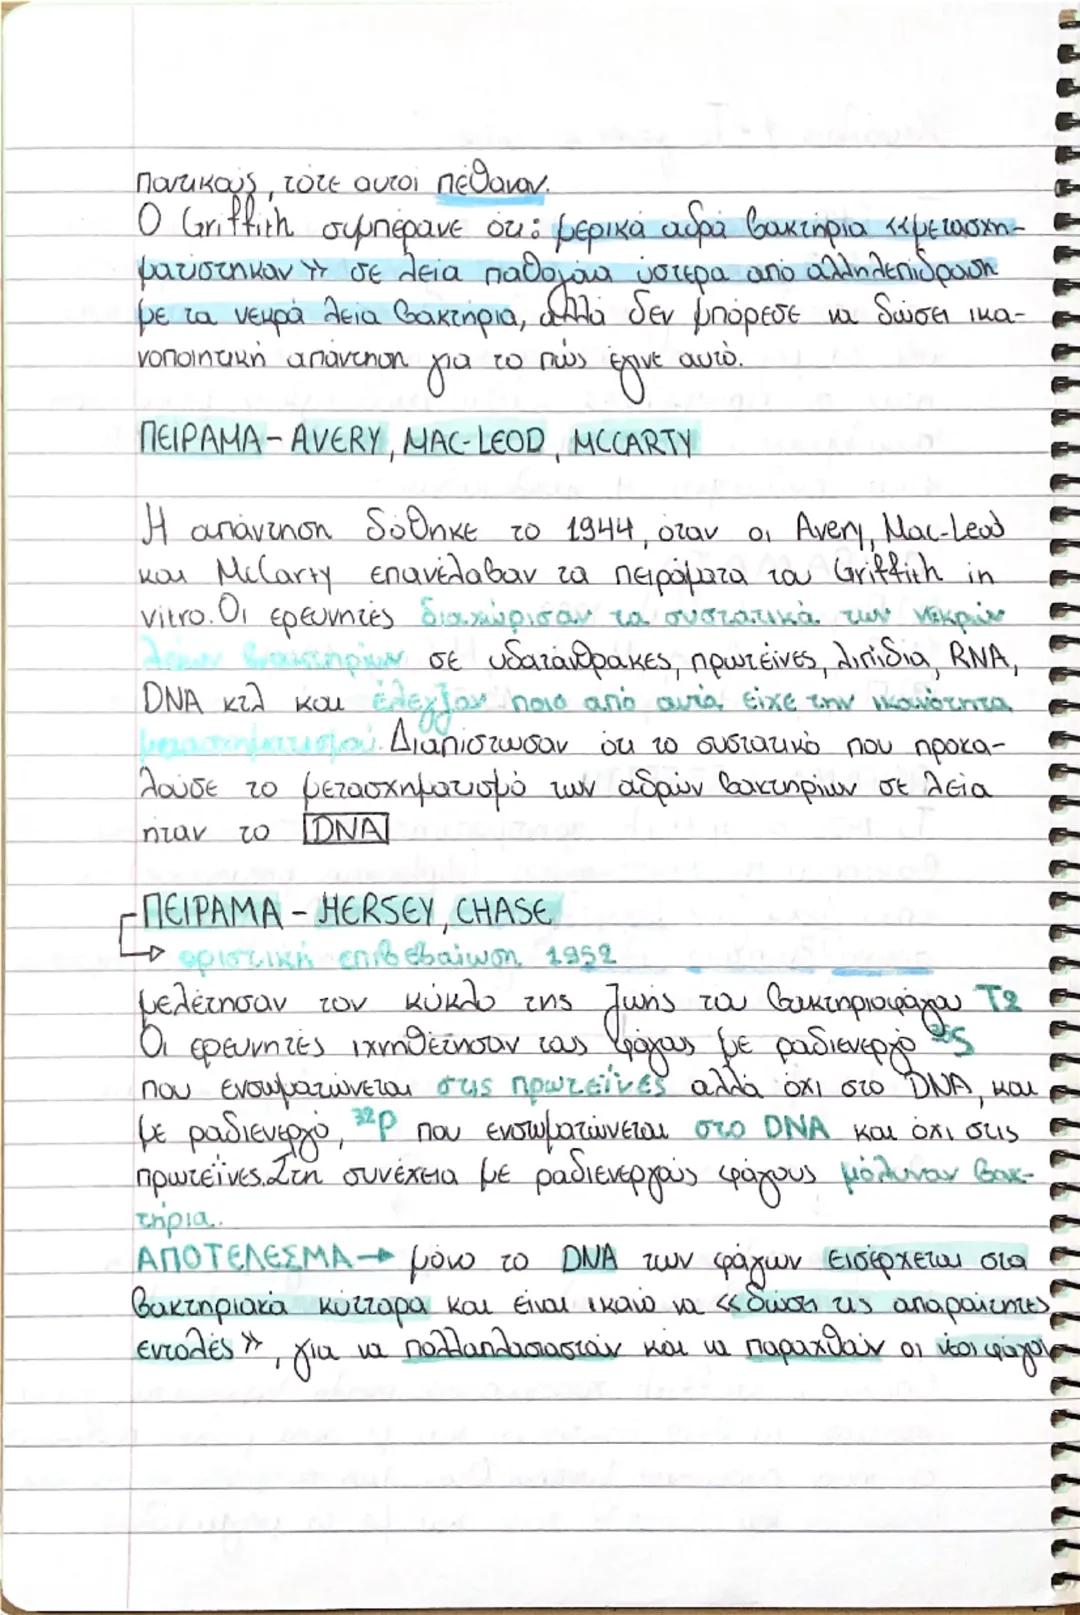 ποντικούς, τότε αυτοί πέθαναν.
Ο Griffith συμπέρανε ότι: μερικά αδρά βακτήρια «μετασχη-
ματίστηκαν» σε λεία παθογόνα ύστερα από αλληλεπίδραση
με τα νεκρά λεία βακτήρια, αλλά δεν μπόρεσε να δώσει ικα-
νοποιητική απάντηση για το πώς έγινε αυτό.
ΠΕΙΡΑΜΑ - AVERY, MAC-LEOD, MCCARTY
Η απάντηση δόθηκε το 1944, όταν οι Avery, Mac-Leod
και McCarty επανέλαβαν τα πειράματα του Griffith in
vitro. Οι ερευνητές διαχώρισαν τα συστατικά των νεκρών
λείων βακτηρίων σε υδατάνθρακες, πρωτεΐνες, λιπίδια, RNA,
DNA κτλ και έλεγξαν ποιο από αυτά είχε την ικανότητα
μετασχηματισμού. Διαπίστωσαν ότι το συστατικό που προκα-
λούσε το μετασχηματισμό των αδρών βακτηρίων σε λεία
ήταν το DNA
ΠΕΙΡΑΜΑ - HERSEY, CHASE
οριστική επιβεβαίωση 1952
μελέτησαν τον κύκλο της ζωής του βακτηριοφάγου T2
Οι ερευνητές ιχνηθέτησαν τους φάγους με ραδιενεργό ³⁵S
που ενσωματώνεται στις πρωτεΐνες αλλά όχι στο DNA, και
με ραδιενεργό, ³²P που ενσωματώνεται στο DNA και όχι στις
πρωτεΐνες. Στη συνέχεια με ραδιενεργούς φάγους μόλυναν βακ-
τήρια.
ΑΠΟΤΕΛΕΣΜΑ → μόνο το DNA των φάγων εισέρχεται στα
βακτηριακά κύτταρα και είναι ικανό να «δώσει τις απαραίτητες
εντολές», για να πολλαπλασιαστούν και να παραχθούν οι νέοι φάγοι